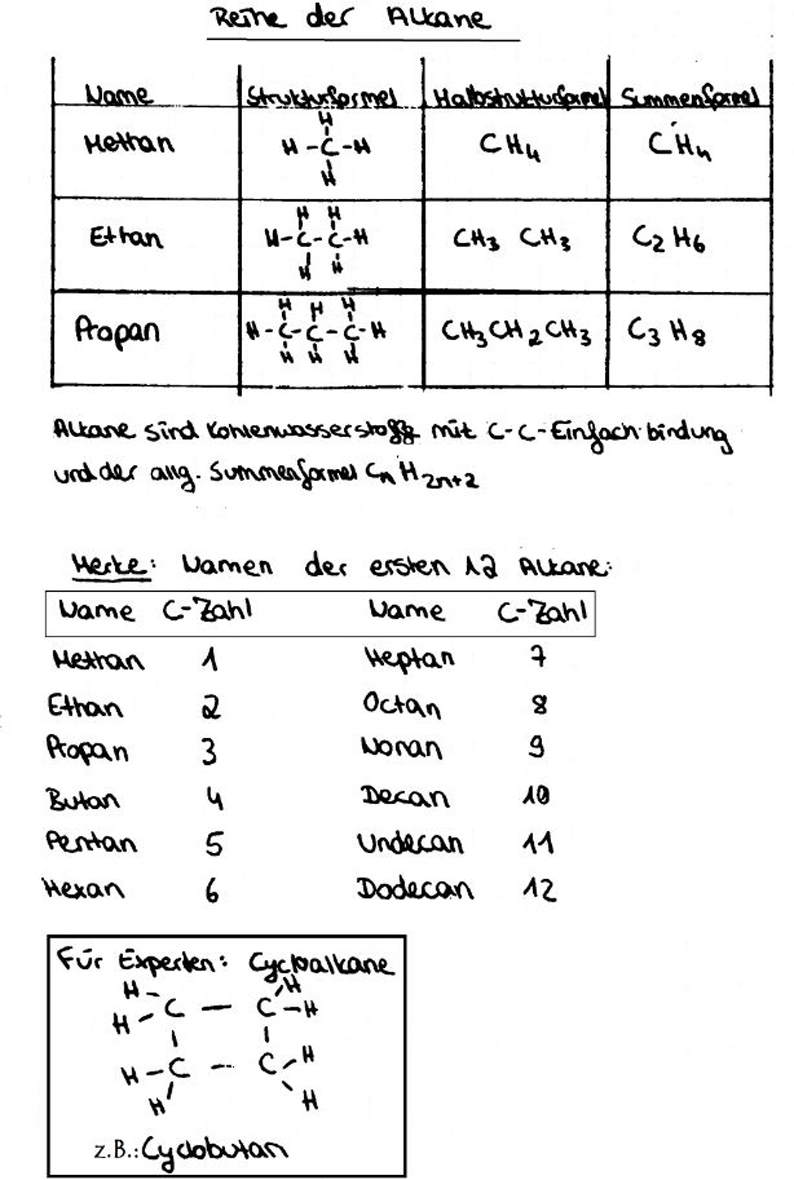 Reihe der Alkane
Name Strukturformel Halbstrukturformel Summenformel
H
Methan H-C-H CH4 CH4
H
H H
Ethan H-C-C-H CH3 CH3 C2H6
H H
H H H
Propan H-C-C-C-H CH3CH2CH3 C3H8
H H H
Alkane sind Kohlenwasserstoffe mit C-C-Einfachbindung
und der allg. Summenformel CnH2n+2
Merke: Namen der ersten 12 Alkane:
Name C-Zahl Name C-Zahl
Methan 1 Heptan 7
Ethan 2 Octan 8
Propan 3 Nonan 9
Butan 4 Decan 10
Pentan 5 Undecan 11
Hexan 6 Dodecan 12
Für Experten: Cycloalkane
H H
H-C-C-H
H-C-C-H
H H
z.B.: Cyclobutan